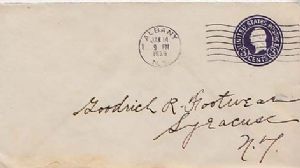 ALBANY
JAN 14
9 PM
N.Y.
UNITED STATES POSTAGE
CENTS
Goodrich R. Footwear
Syracuse
N.Y.